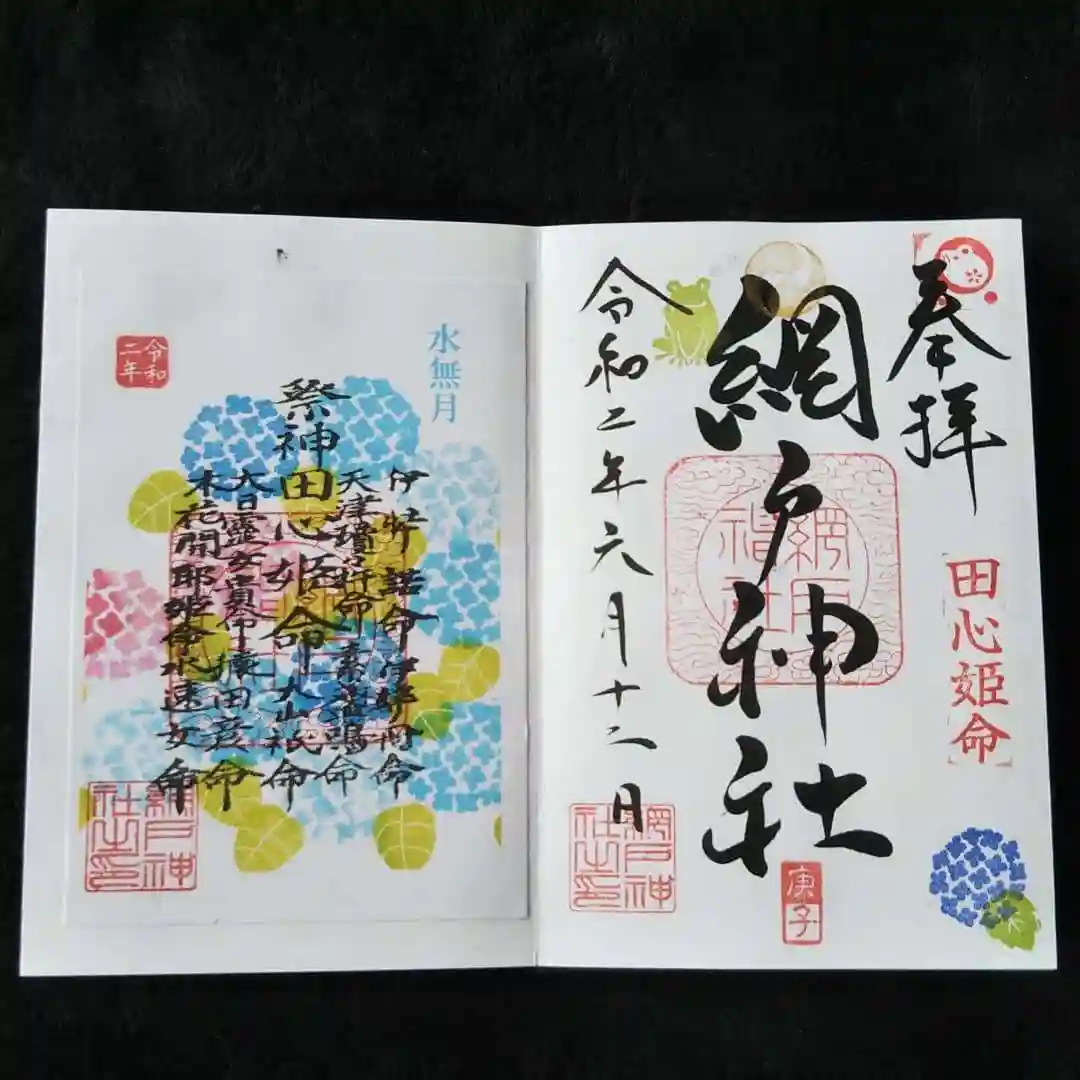 奉拝
田心姫命
網戸神社
網戸神社
庚子
令和二年六月十二日
網戸神社之印
水無月
伊弉諾命伊弉冉命
天津瓊々杵命素盞嗚命
祭神
田心姫命大山祇命
大日靈女貴命猿田彦命
木花開耶姫命水速女命
令和二年
網戸神社之印